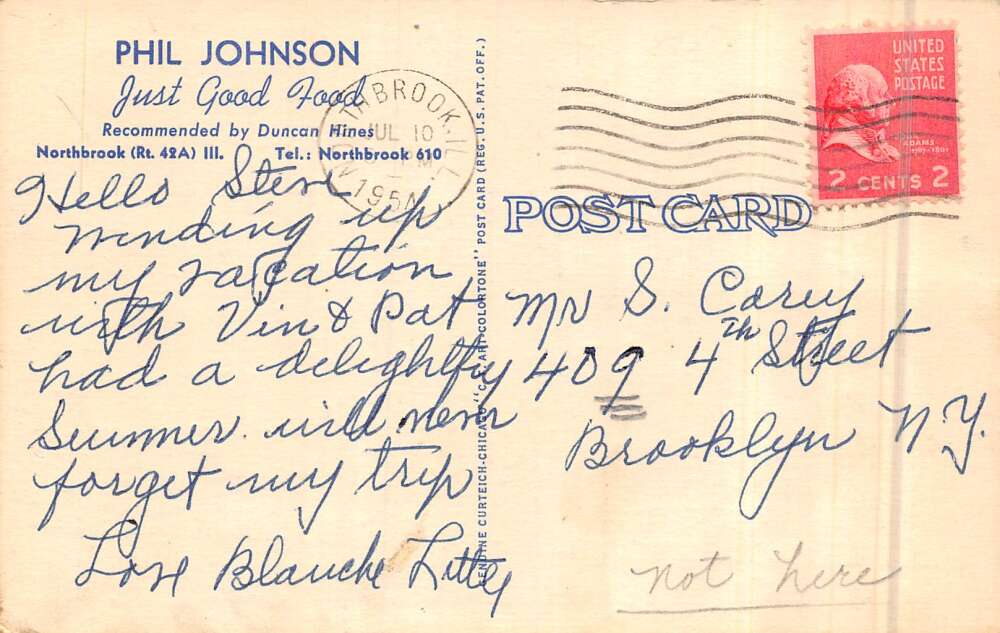 PHIL JOHNSON
Just Good Food
Recommended by Duncan Hines
Northbrook (Rt. 42A) Ill. Tel.: Northbrook 610
Hello Steve
winding up
my vacation
with Vin & Pat
had a delightful
Summer. will never
forget my trip
Love Blanche
GENUINE CURTEICH-CHICAGO "C.T. ART-COLORTONE" POST CARD (REG. U.S. PAT. OFF.)
NORTHBROOK, ILL.
JUL 10
195
UNITED
STATES
POSTAGE
ADAMS
2 CENTS 2
POST CARD
Mr S. Carey
409 4th Street
Brooklyn N.Y.
not here